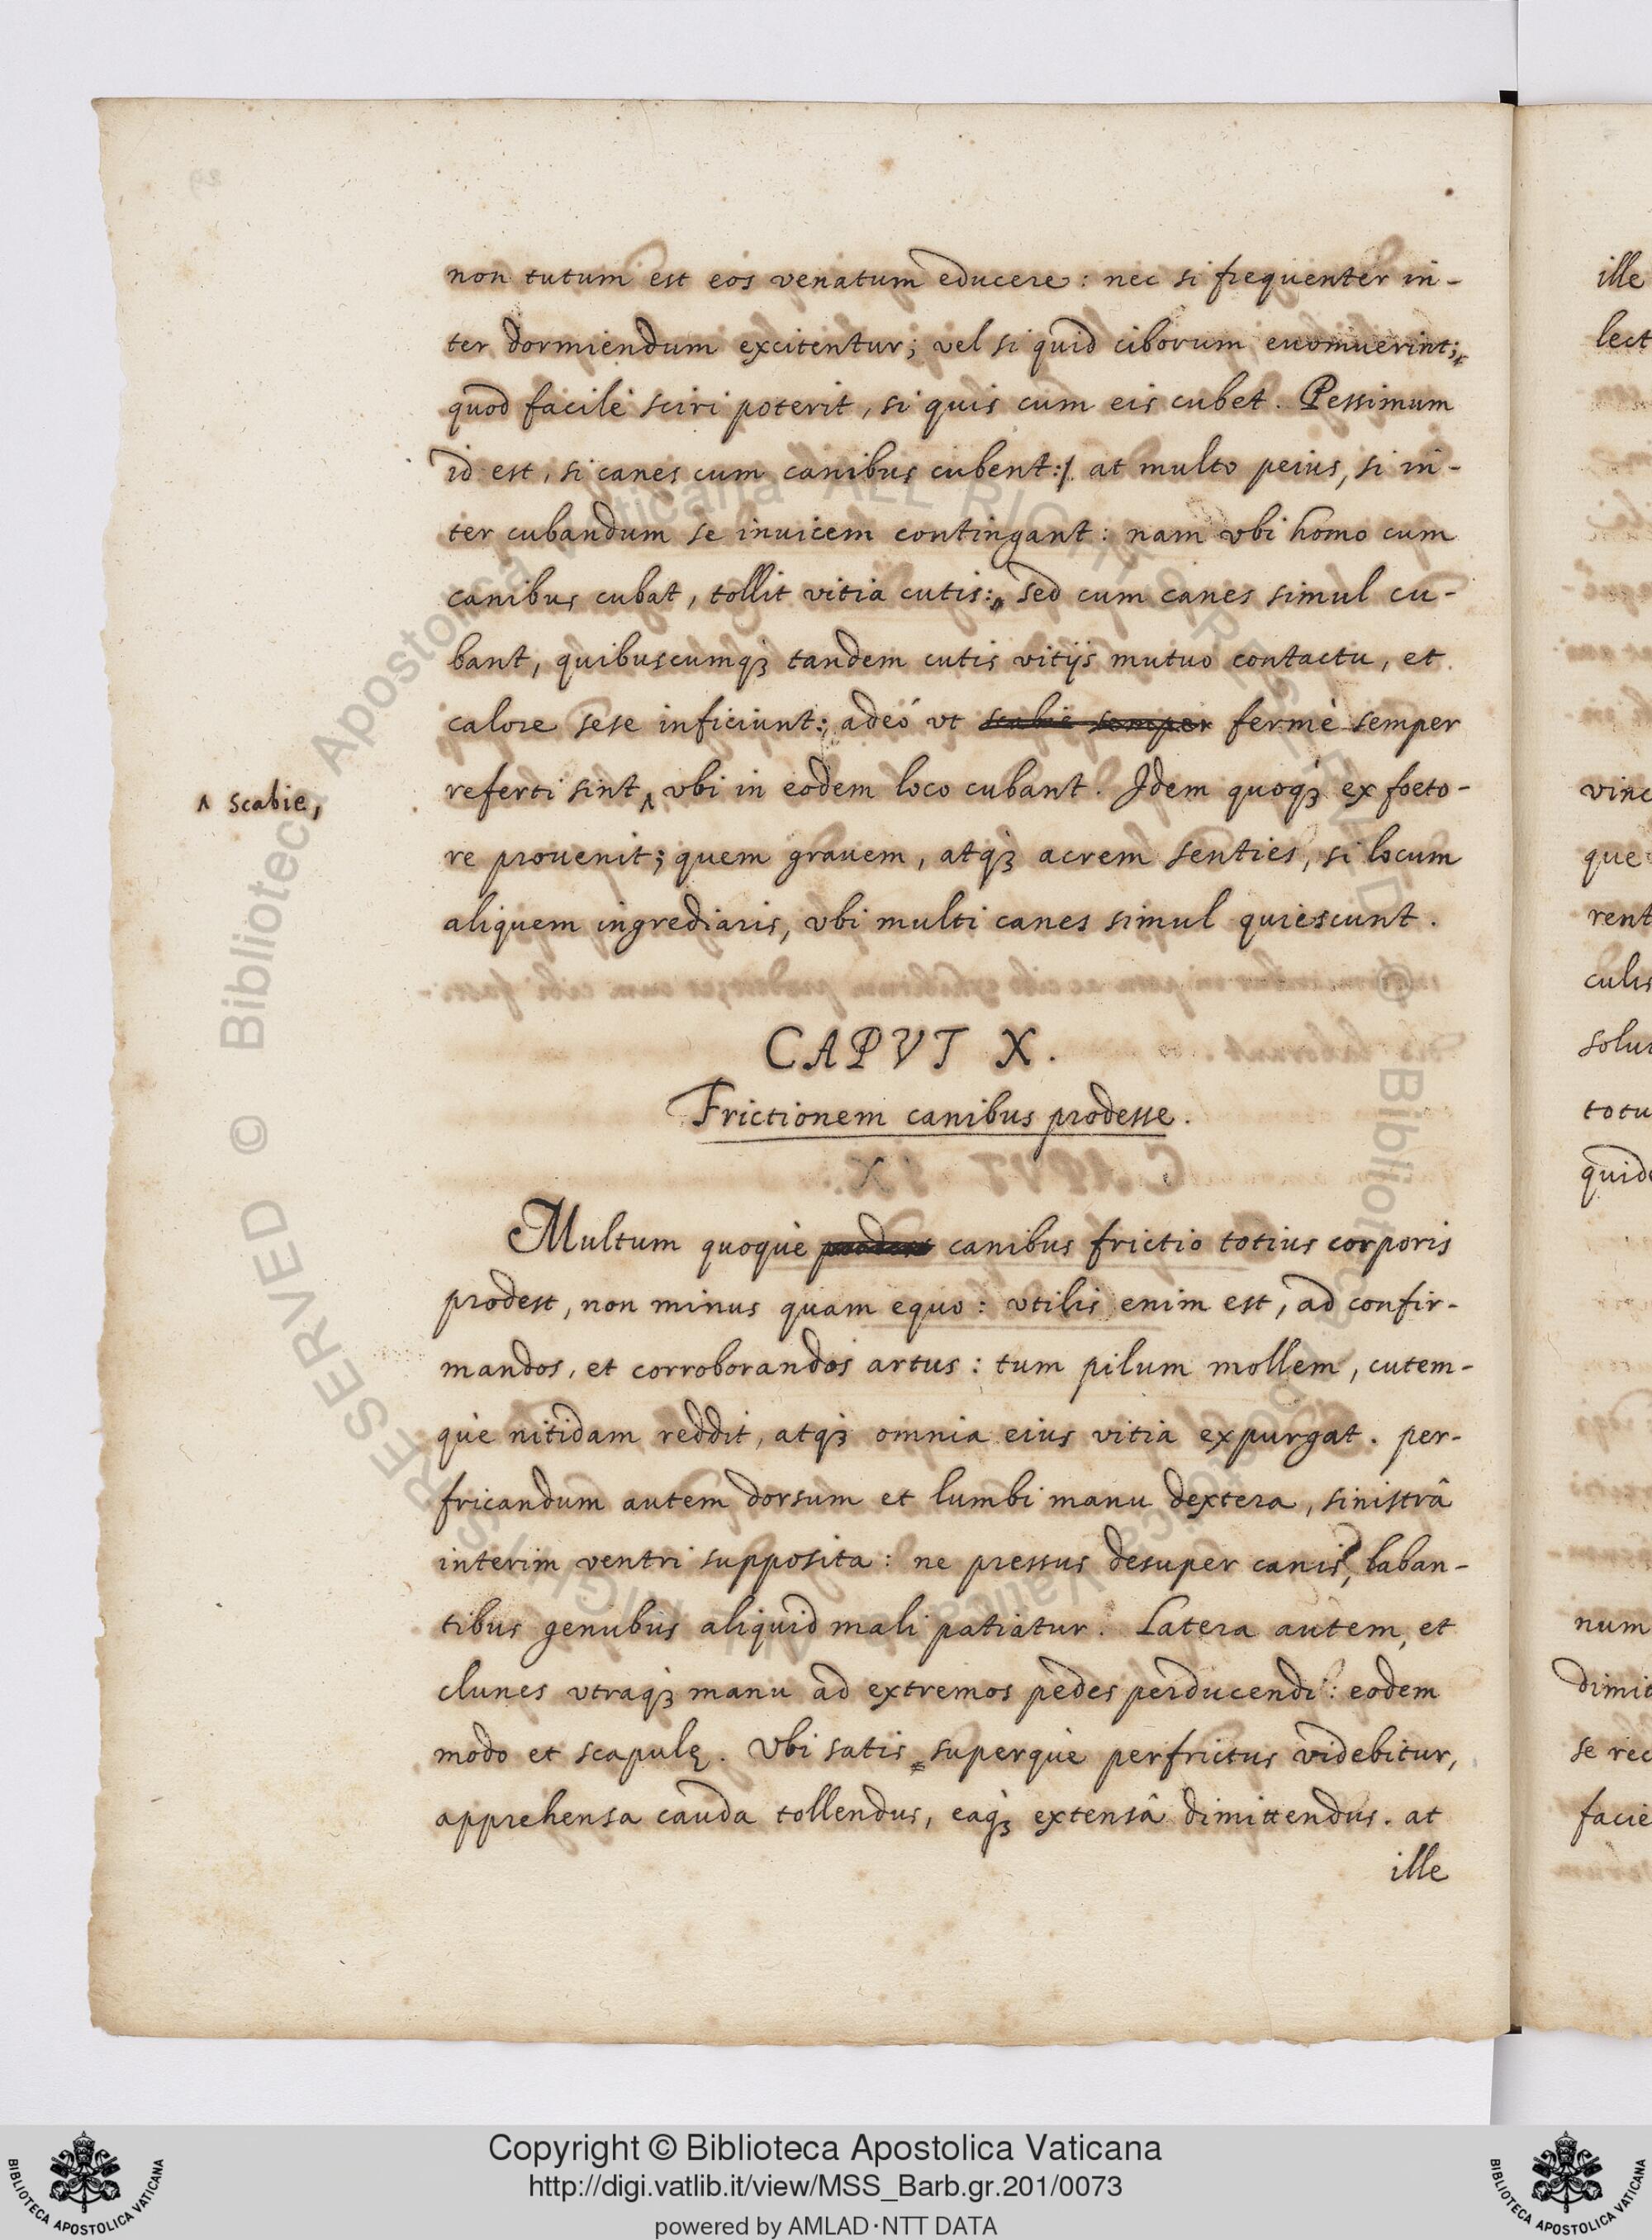 non tutum est eos venatum educere: nec si frequenter in-
ter dormiendum excitentur; vel si quid ciborum euomuerint;
quod facilè sciri poterit, si quis cum eis cubet. Pessimum
id est, si canes cum canibus cubent: at multo peius, si in-
ter cubandum se inuicem contingant: nam vbi homo cum
canibus cubat, tollit vitia cutis: sed cum canes simul cu-
bant, quibuscumqȝ tandem cutis vitijs mutuo contactu, et
calore sese inficiunt: adeó vt scabie semper fermè semper
^ scabie,
referti sint ^ vbi in eodem loco cubant. Idem quoqȝ ex foeto-
re prouenit; quem grauem, atqȝ acrem senties, si locum
aliquem ingrediaris, vbi multi canes simul quiescunt.
CAPVT X.
Frictionem canibus prodesse.
Multum quoquè prodest canibus frictio totius corporis
prodest, non minus quam equo: vtilis enim est, ad confir-
mandos, et corroborandos artus: tum pilum mollem, cutem-
què nitidam reddit, atqȝ omnia eius vitia expurgat. per-
fricandum autem dorsum et lumbi manu dextera, sinistrâ
interim ventri supposita: ne pressus desuper canis, laban-
tibus genubus aliquid mali patiatur. Latera autem, et
clunes vtraqȝ manu ad extremos pedes perducendi: eodem
modo et scapulę. Vbi satis superquè perfrictus videbitur,
apprehensa cauda tollendus, eaqȝ extensâ dimittendus. at
ille
ille
lect
vinc
que
rent
culis
solu
totu
quid
num
dimit
se rec
facie
© Biblioteca Apostolica Vaticana ALL RIGHTS RESERVED
Copyright © Biblioteca Apostolica Vaticana
http://digi.vatlib.it/view/MSS_Barb.gr.201/0073
powered by AMLAD·NTT DATA
BIBLIOTECA APOSTOLICA VATICANA
BIBLIOTECA APOSTOLICA VATICANA